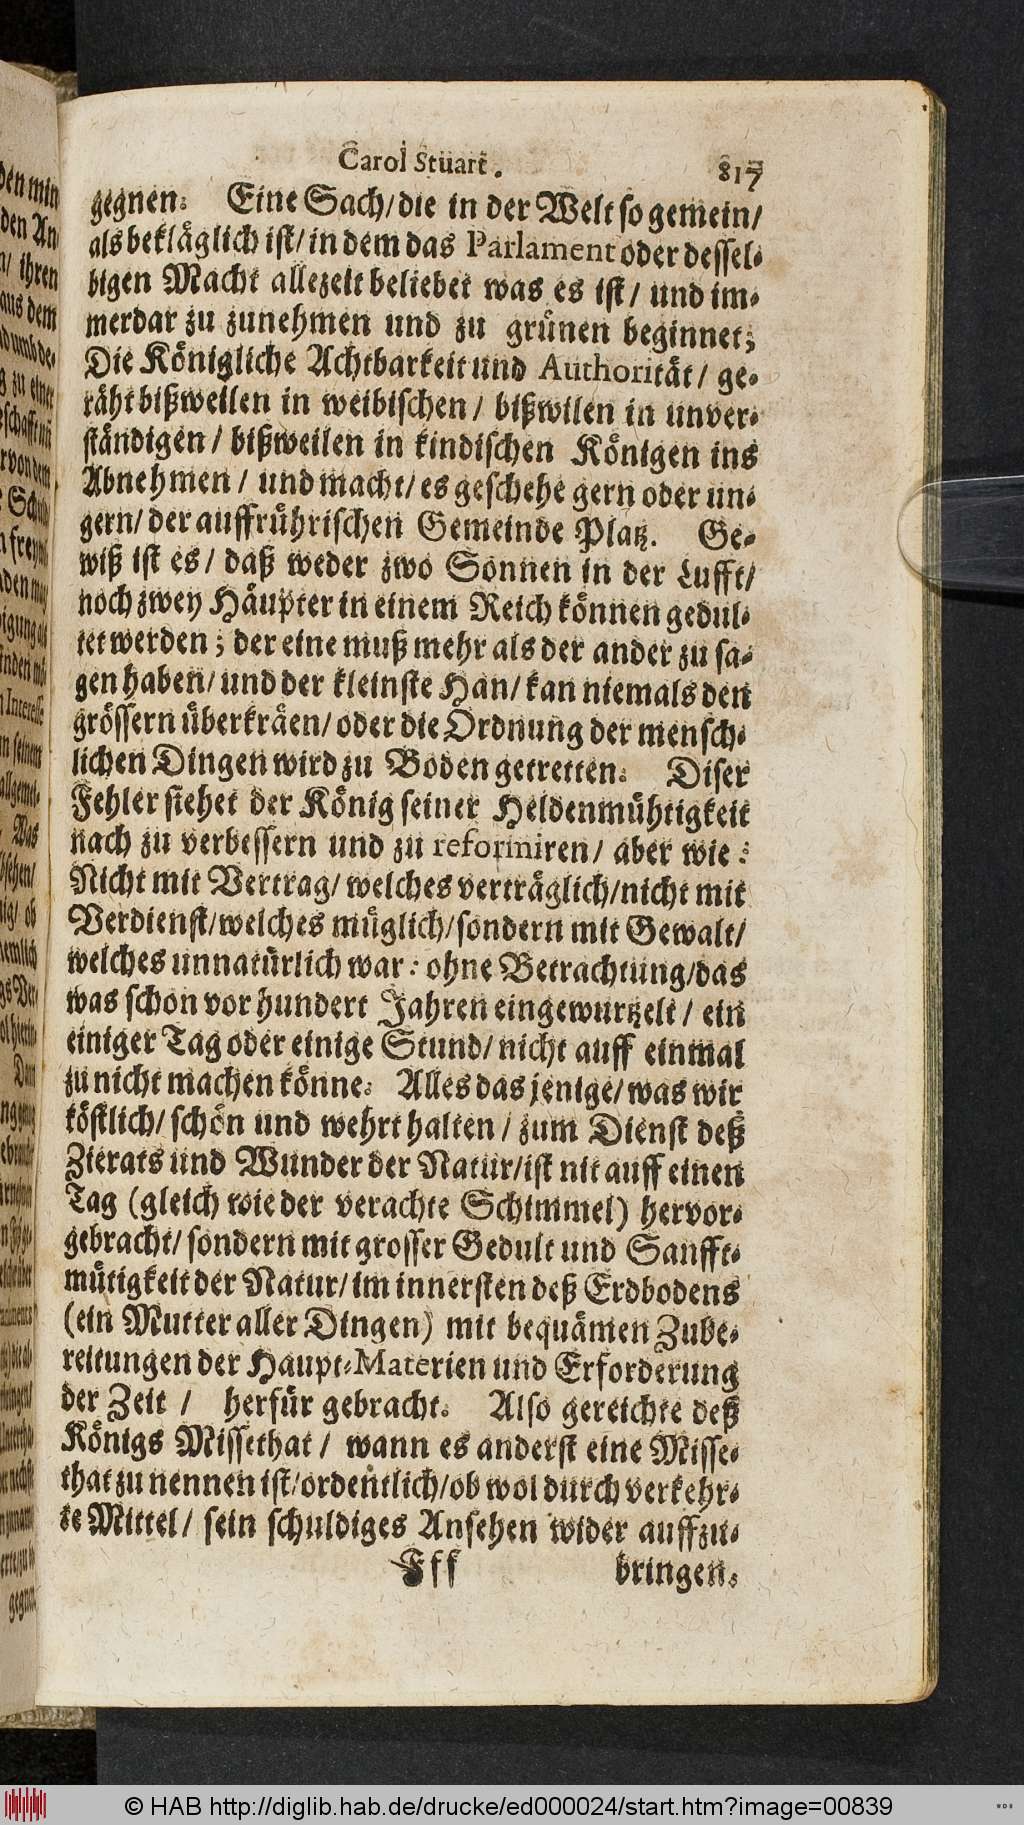 Carol Stuart. 817
gegnen. Eine Sach/die in der Welt so gemein/
als bekläglich ist/in dem das Parlament oder dessel-
bigen Macht allezeit beliebet was es ist/ und im-
merdar zu zunehmen und zu grünen beginnet;
Die Königliche Achtbarkeit und Authorität/ ge-
räht bißweilen in weibischen/ bißwilen in unver-
ständigen/ bißweilen in kindischen Königen ins
Abnehmen/ und macht/ es geschehe gern oder un-
gern/ der auffrührischen Gemeinde Platz. Ge-
wiß ist es/ daß weder zwo Sonnen in der Lufft/
noch zwey Häupter in einem Reich können gedul-
tet werden; der eine muß mehr als der ander zu sa-
gen haben/ und der kleinste Han/ kan niemals den
grössern überkräen/ oder die Ordnung der mensch-
lichen Dingen wird zu Boden getretten. Diser
Fehler stehet der König seiner Heldenmühtigkeit
nach zu verbessern und zu reformiren/ aber wie:
Nicht mit Vertrag/ welches verträglich/nicht mit
Verdienst/welches müglich/sondern mit Gewalt/
welches unnatürlich war: ohne Betrachtung/das
was schon vor hundert Jahren eingewurtzelt/ ein
einiger Tag oder einige Stund/ nicht auff einmal
zu nicht machen könne. Alles das jenige/ was wir
köstlich/ schön und wehrt halten/ zum Dienst deß
Zierats und Wunder der Natur/ist nit auff einen
Tag (gleich wie der verachte Schimmel) hervor-
gebracht/ sondern mit grosser Gedult und Sanfft-
mütigkeit der Natur/ im innersten deß Erdbodens
(ein Mutter aller Dingen) mit bequämen Zube-
reitungen der Haupt-Materien und Erforderung
der Zeit/ herfür gebracht. Also gereichte deß
Königs Missethat/ wann es anderst eine Misse-
that zu nennen ist/ordentlich/ob wol durch verkehr-
te Mittel/ sein schuldiges Ansehen wider auffzu-
Fff bringen.
© HAB http://diglib.hab.de/drucke/ed000024/start.htm?image=00839